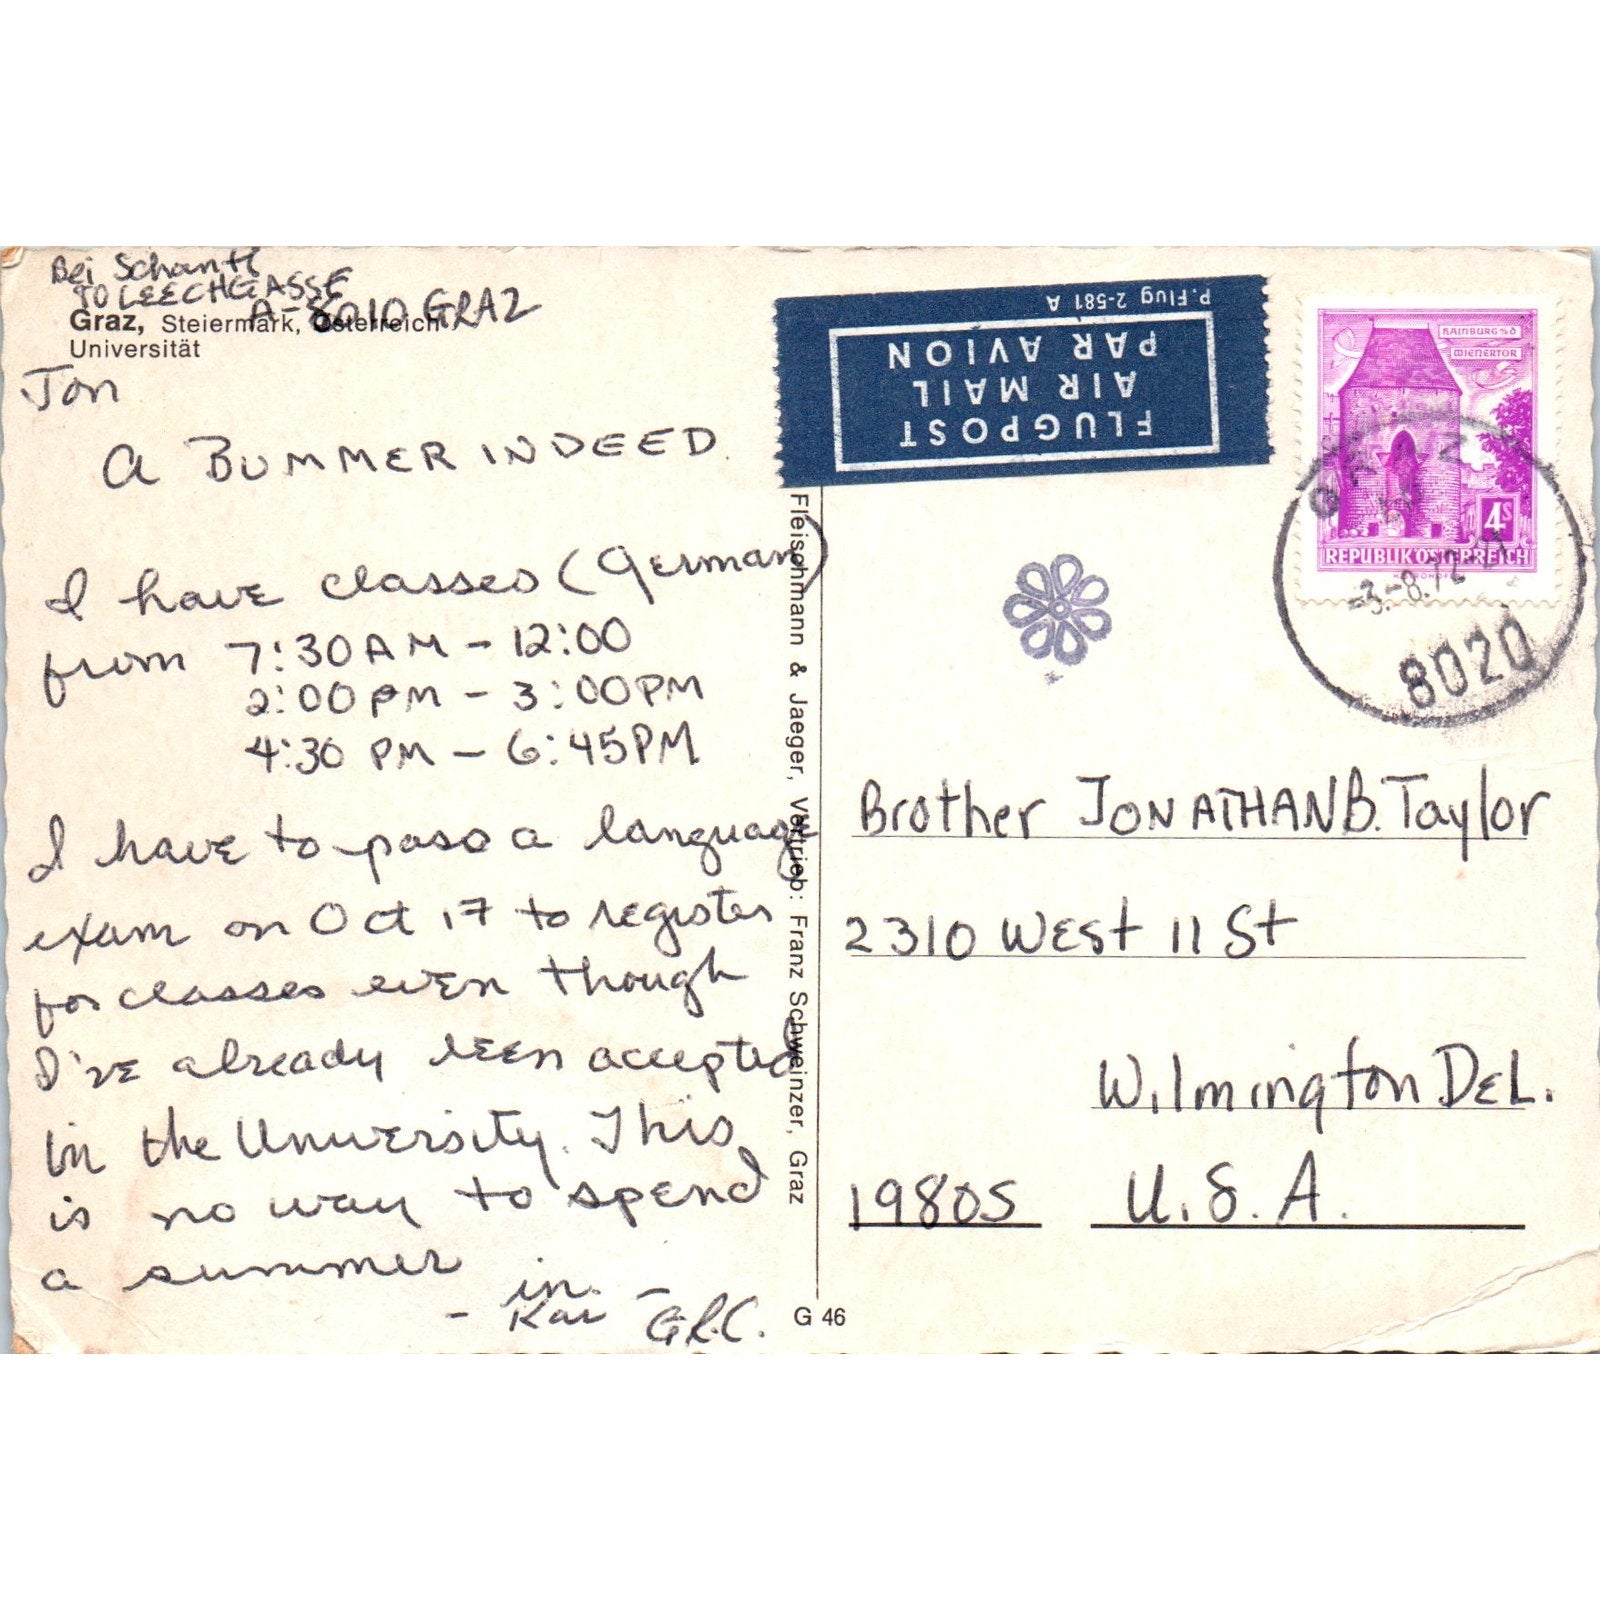 Bei Schantl
90 LEECHGASSE
A-8010 GRAZ
Graz, Steiermark, Österreich
Universität
Jon
A BUMMER INDEED.
I have classes (German)
from 7:30 AM - 12:00
2:00 PM - 3:00 PM
4:30 PM - 6:45 PM
I have to pass a language
exam on Oct 17 to register
for classes even though
I've already been accepted
in the University. This
is no way to spend
a summer
in.
- Kai -
G.R.C.
Fleischmann & Jaeger, Vertrieb: Franz Schweinzer, Graz
G 46
P.Flug 2-581 A
FLUGPOST
AIR MAIL
PAR AVION
HAINBURG a/d
WIENERTOR
4S
REPUBLIK ÖSTERREICH
GRAZ
-3.-8.72-21
8020
Brother JONATHAN B. Taylor
2310 WEST 11 St
Wilmington DEL.
19805 U.S.A.